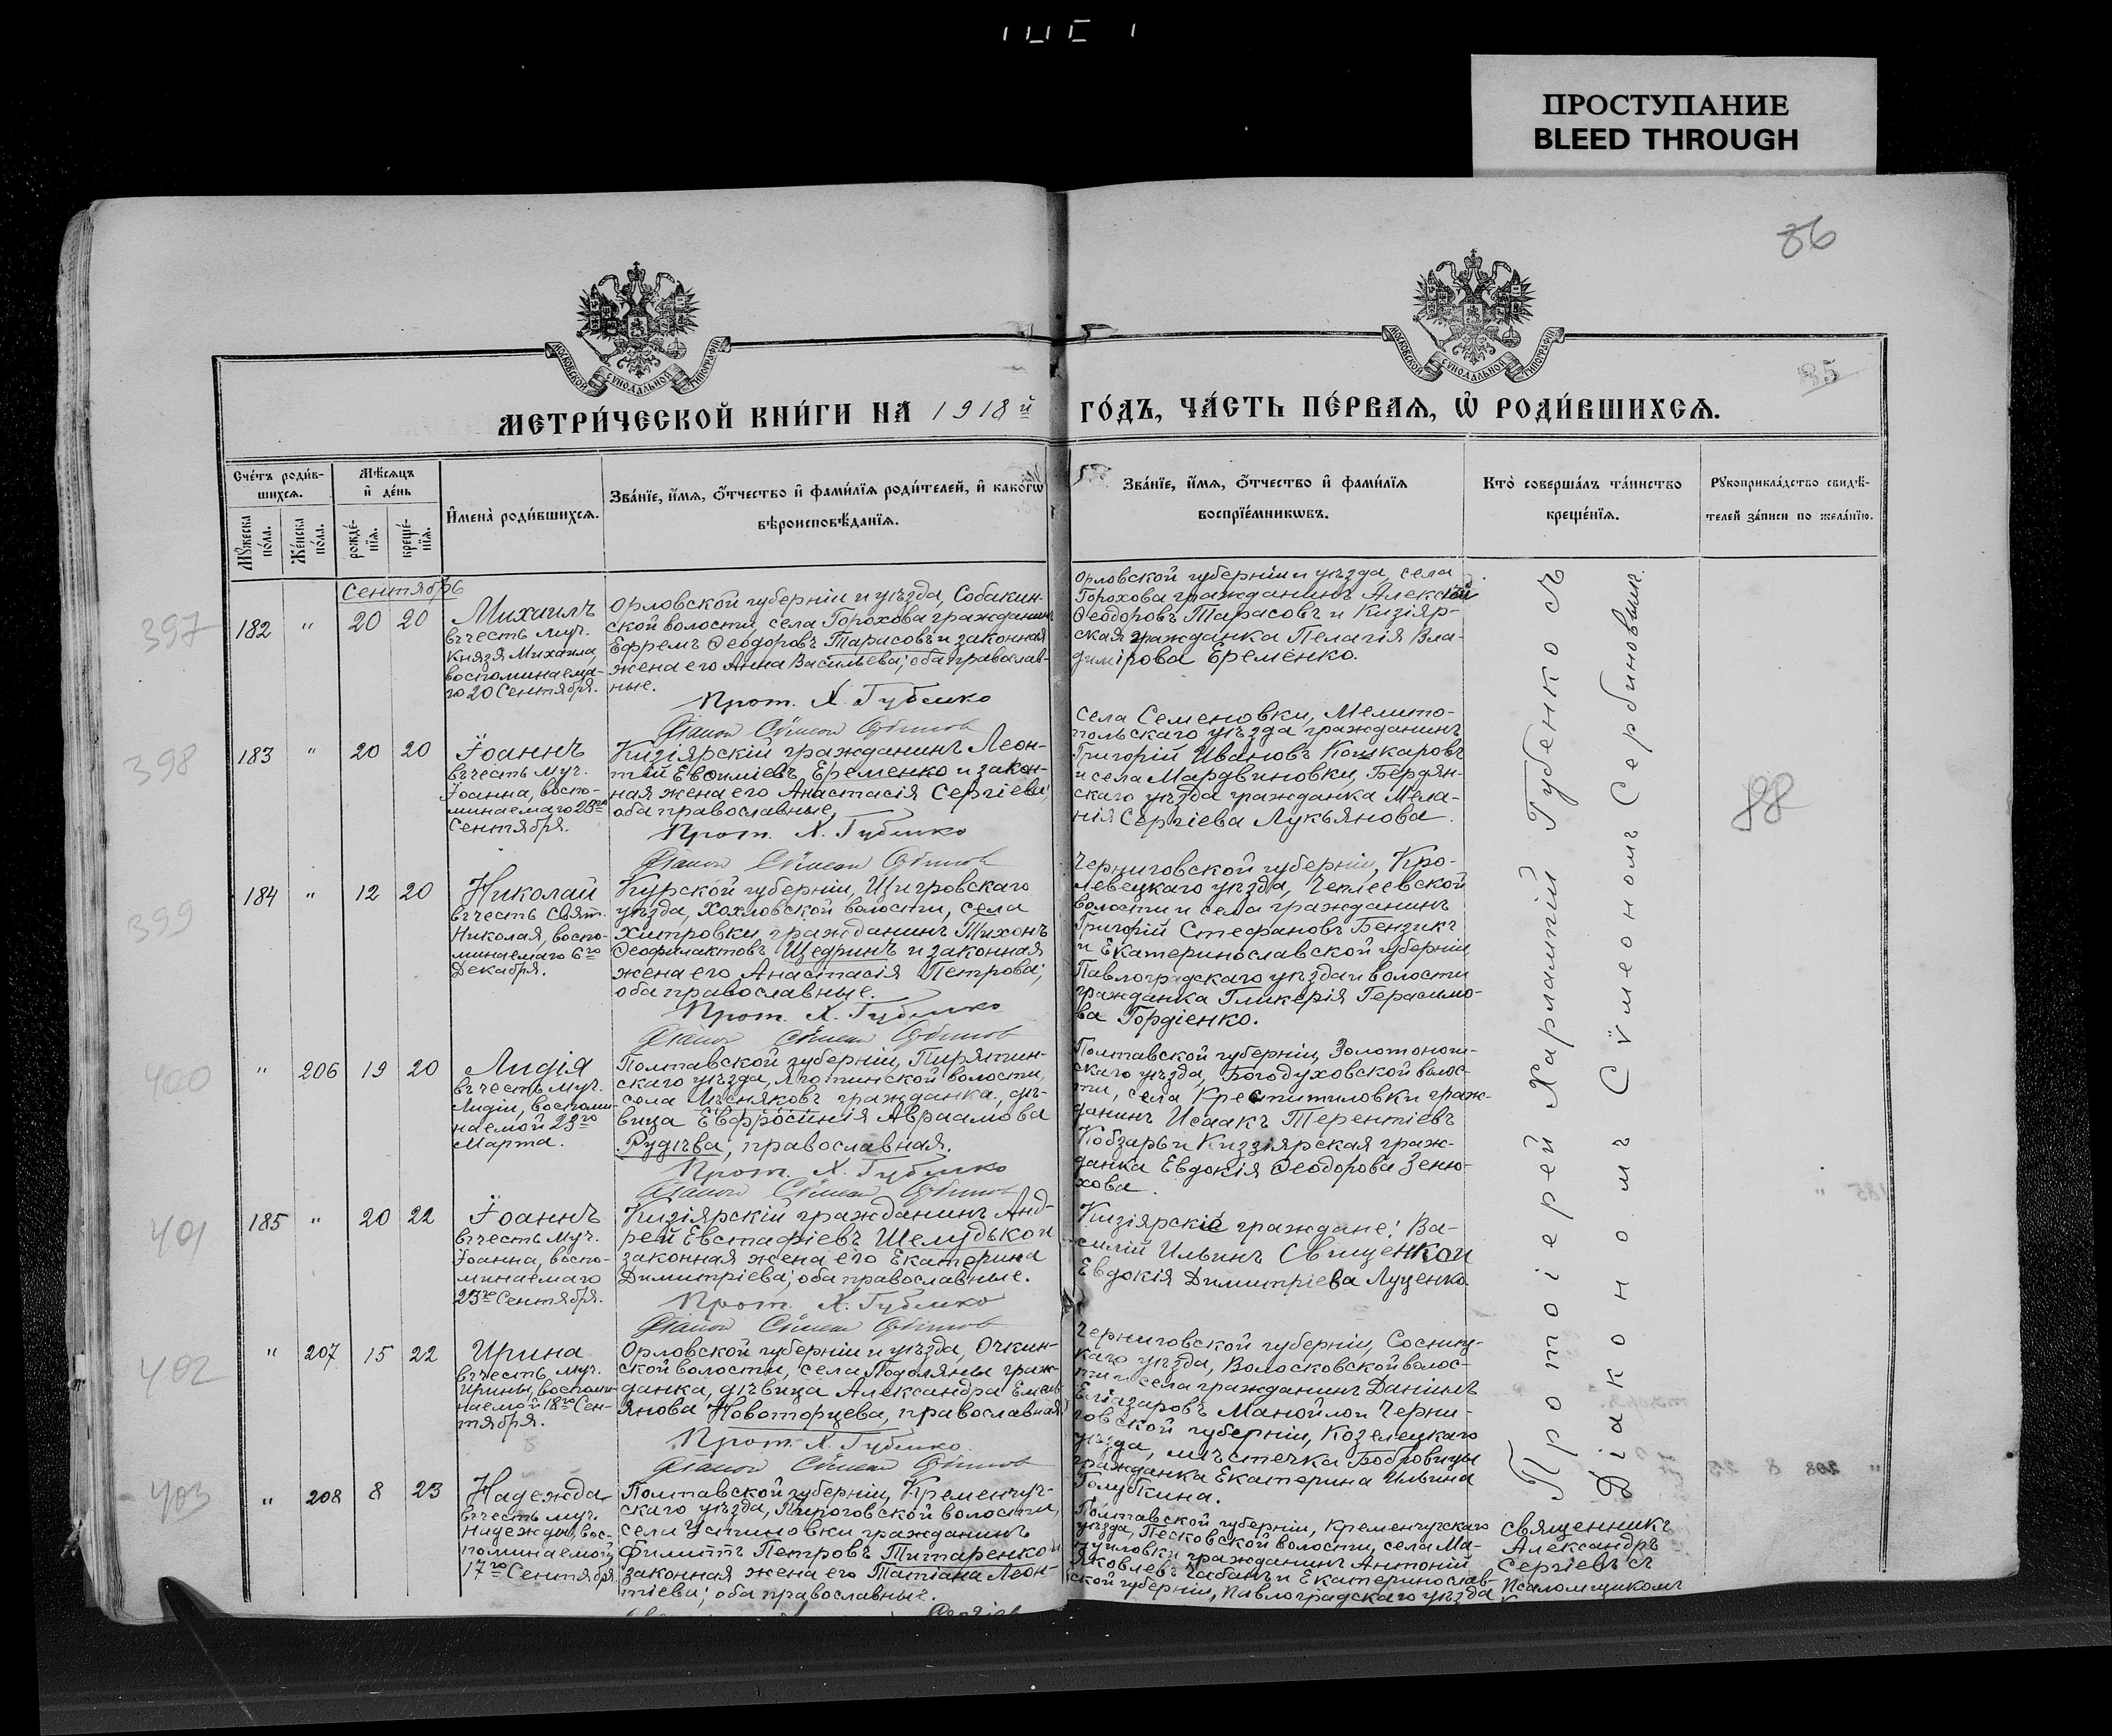 ПРОСТУПАНИЕ
BLEED THROUGH
86
85
МОСКОВСКОЙ СУНОДАЛЬНОЙ ТИПОГРАФІИ
МОСКОВСКОЙ СУНОДАЛЬНОЙ ТИПОГРАФІИ
МЕТРИ́ЧЕСКОЙ КНИ́ГИ НА 1918й ГО́ДЪ, ЧА́СТЬ ПЕ́РВАѦ, Ѡ҆ РОДИ́ВШИХСѦ.
Сче́тъ роди́в-
шихсѧ.
Мꙋ́жеска по́ла.
Же́нска по́ла.
Мѣ́сѧцъ
и҆ де́нь
рожде́-
нїѧ.
креще́-
нїѧ.
И҆мена̀ роди́вшихсѧ.
Зва́нїе, и҆́мѧ, ѻ҆́тчество и҆ фами́лїѧ роди́телей, и҆ како́гѡ
вѣроисповѣ́данїѧ.
Зва́нїе, и҆́мѧ, ѻ҆́тчество и҆ фами́лїѧ
воспрїе́мникѡвъ.
Кто̀ соверша́лъ та́инство
креще́нїѧ.
Рꙋкоприкла́дство свидѣ́-
телей за́писи по жела́нїю.
Сентябрь
397
182 " 20 20
Михаилъ
въ честь муч.
Князя Михаила,
воспоминаема-
го 20 Сентября.
Орловской губерніи и уѣзда, Собакин-
ской волости, села Горохова гражданинъ
Ефремъ Ѳеодоровъ Тарасовъ и законная
жена его Анна Васильева; оба православ-
ные.
Прот. Х. Губенко
Орловской губерніи и уѣзда, села
Горохова гражданинъ Алексѣй
Ѳеодоровъ Тарасовъ и Кизіяр-
ская гражданка Пелагія Вла-
димірова Еременко.
398
183 " 20 20
Іоаннъ
въ честь муч.
Іоанна, воспо-
минаемаго 23го
Сентября.
Кизіярскій гражданинъ Леон-
тій Евѳиміевъ Еременко и закон-
ная жена его Анастасія Сергіева;
оба православные.
Прот. Х. Губенко
села Семеновки, Мелито-
польскаго уѣзда гражданинъ
Григорій Ивановъ Кошкаровъ
и села Мардвиновки, Бердян-
скаго уѣзда гражданка Мела-
нія Сергіева Лукьянова.
88
399
184 " 12 20
Николай
въ честь Свят.
Николая, воспо-
минаемаго 6го
Декабря.
Курской губерніи, Щигровскаго
уѣзда, Хохловской волости, села
Хитровки гражданинъ Тихонъ
Ѳеофилактовъ Щедринъ и законная
жена его Анастасія Петрова;
оба православные.
Прот. Х. Губенко
Черниговской губерніи, Кро-
левецкаго уѣзда, Чеплеевской
волости и села гражданинъ
Григорій Стефановъ Бензикъ
и Екатеринославской губерніи,
Павлоградскаго уѣзда и волости
гражданка Гликерія Герасимо-
ва Гордіенко.
400
" 206 19 20
Лидія
въ честь муч.
Лидіи, воспоми-
наемой 23го
Марта.
Полтавской губерніи, Пирятин-
скаго уѣзда, Яготинской волости,
села Лѣсняковъ гражданка, дѣ-
вица Евфросинія Авраамова
Рудѣва, православная.
Прот. Х. Губенко
Полтавской губерніи, Золотонош-
скаго уѣзда, Богодуховской волос-
ти, села Крештиловки граж-
данинъ Исаакъ Терентіевъ
Кобзарь и Киззіярская граж-
данка Евдокія Ѳеодорова Зеню-
хова.
401
185 " 20 22
Іоаннъ
въ честь муч.
Іоанна, воспо-
минаемаго
23го Сентября.
Кизіярскій гражданинъ Анд-
рей Евстафіевъ Шелудько и
законная жена его Екатерина
Димитріева; оба православные.
Прот. Х. Губенко
Кизіярскіе граждане: Ва-
силій Ильинъ Свищенко и
Евдокія Димитріева Луценко.
402
" 207 15 22
Ирина
въ честь муч.
Ирины, воспоми-
наемой 18го Сен-
тября.
Орловской губерніи и уѣзда, Очкин-
ской волости, села Подоляны граж-
данка, дѣвица Александра Емель-
янова Новоторцева, православная.
Прот. Х. Губенко
Черниговской губерніи, Сосниц-
каго уѣзда, Волосковской волос-
ти и села гражданинъ Даніилъ
Еліазаровъ Манойло и Черни-
говской губерніи, Козелецкаго
уѣзда, мѣстечка Бобровицы
гражданка Екатерина Ильина
Голубкина.
Протоіерей Харлампій Губенко съ
Діакономъ Сѵмеономъ Сербиновымъ.
403
" 208 8 23
Надежда
въ честь муч.
Надежды, вос-
поминаемой
17го Сентября
Полтавской губерніи, Кременчуг-
скаго уѣзда, Пироговской волости,
села Устиновки гражданинъ
Филиппъ Петровъ Титаренко и
законная жена его Татіана Леон-
тіева; оба православные.
Полтавской губерніи, Кременчугскаго
уѣзда, Песковской волости, села Ма-
нуиловки гражданинъ Антоній
Яковлевъ Чабанъ и Екатеринослав-
ской губерніи, Павлоградскаго уѣзда
Священникъ
Александръ
Сергіевъ съ
Псаломщикомъ